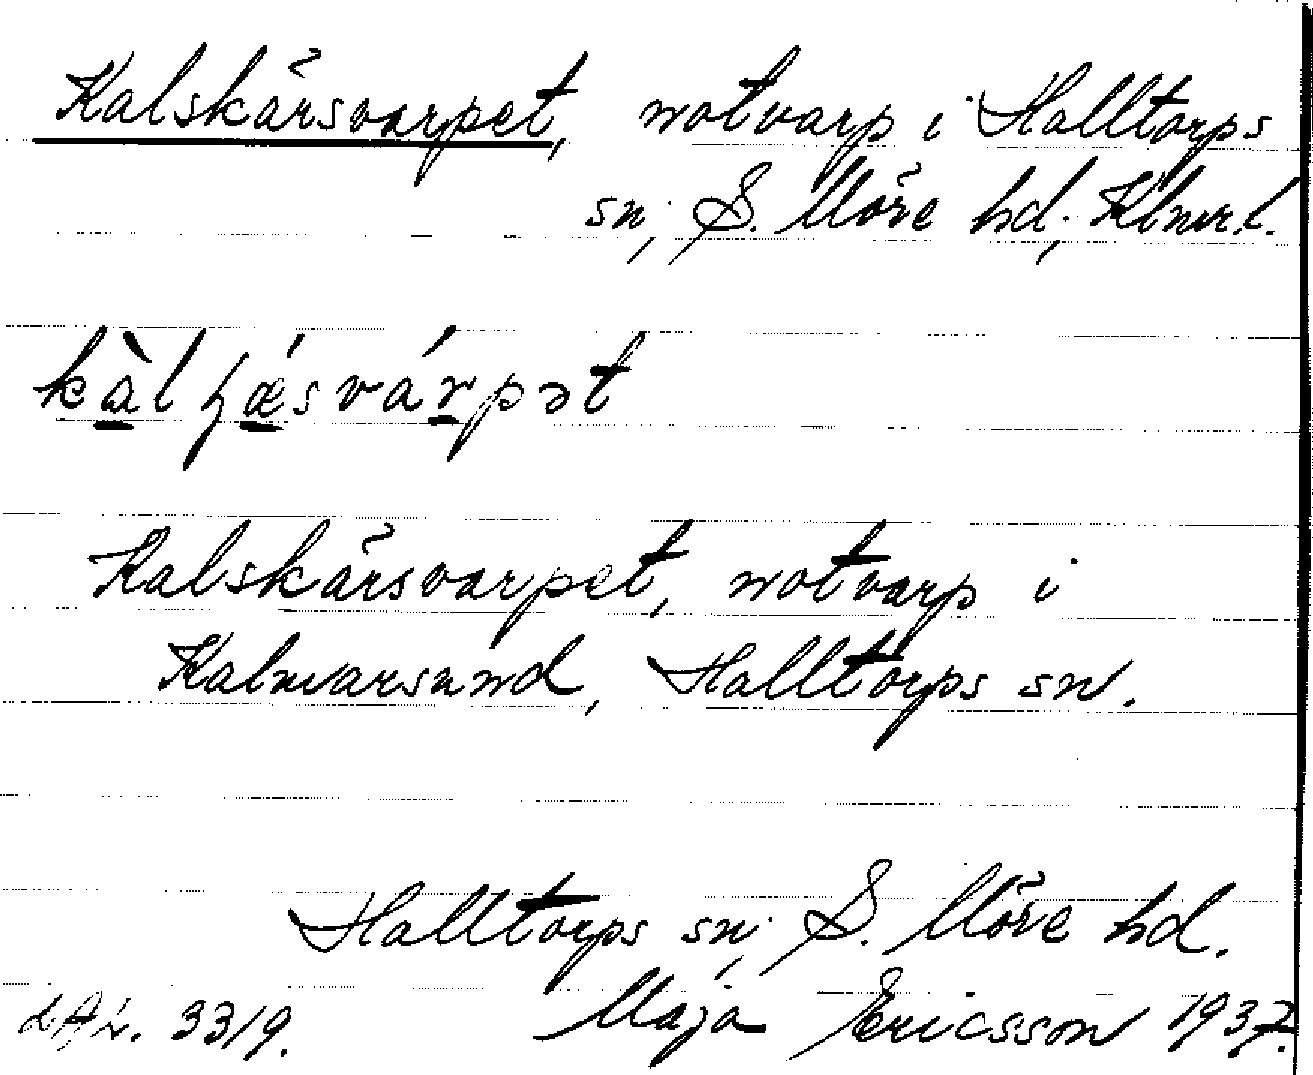 Kalskärsvarpet, notvarp i Halltorps
sn, S. Möre hd, Klmrl.
kàlʃǽsvárpət
Kalskärsvarpet, notvarp i
Kalmarsund, Halltorps sn.
Halltorps sn, S. Möre hd.
3319. Maja Ericsson 1937.